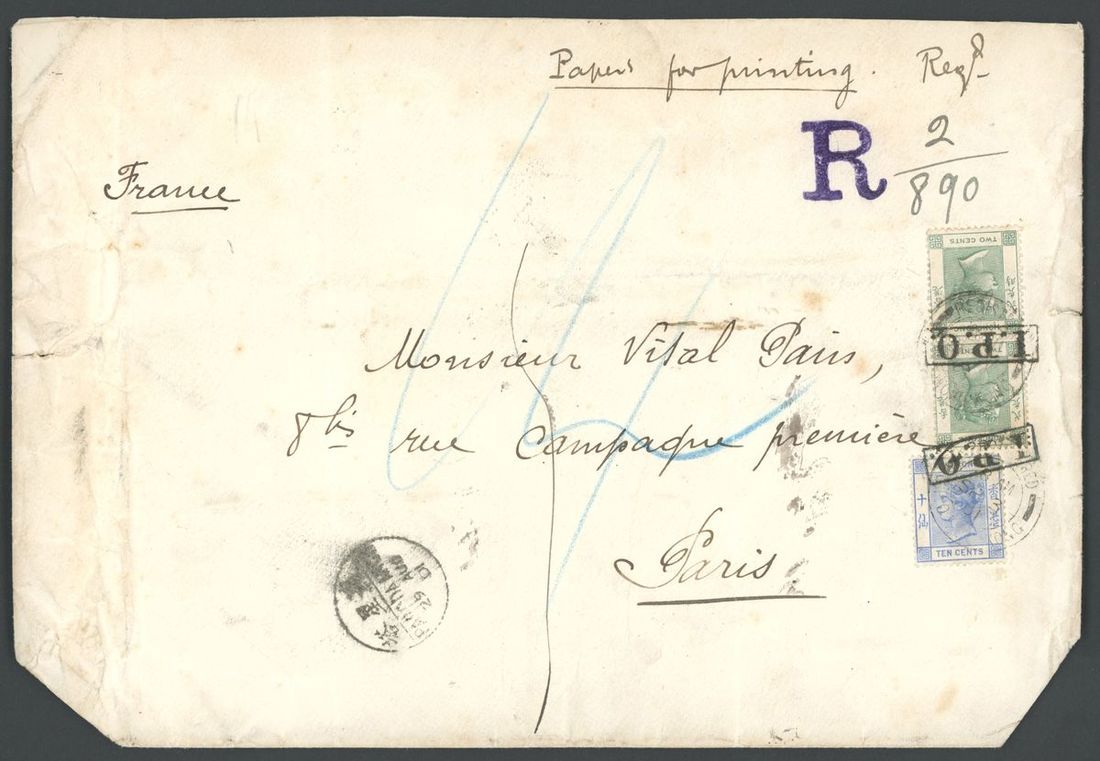 Papers for printing. Regd
R 2/890
France
TWO CENTS
I.P.O.
Monsieur Vital Pais,
8bis rue Campagne première
I.P.O.
十仙
TEN CENTS
Paris
29